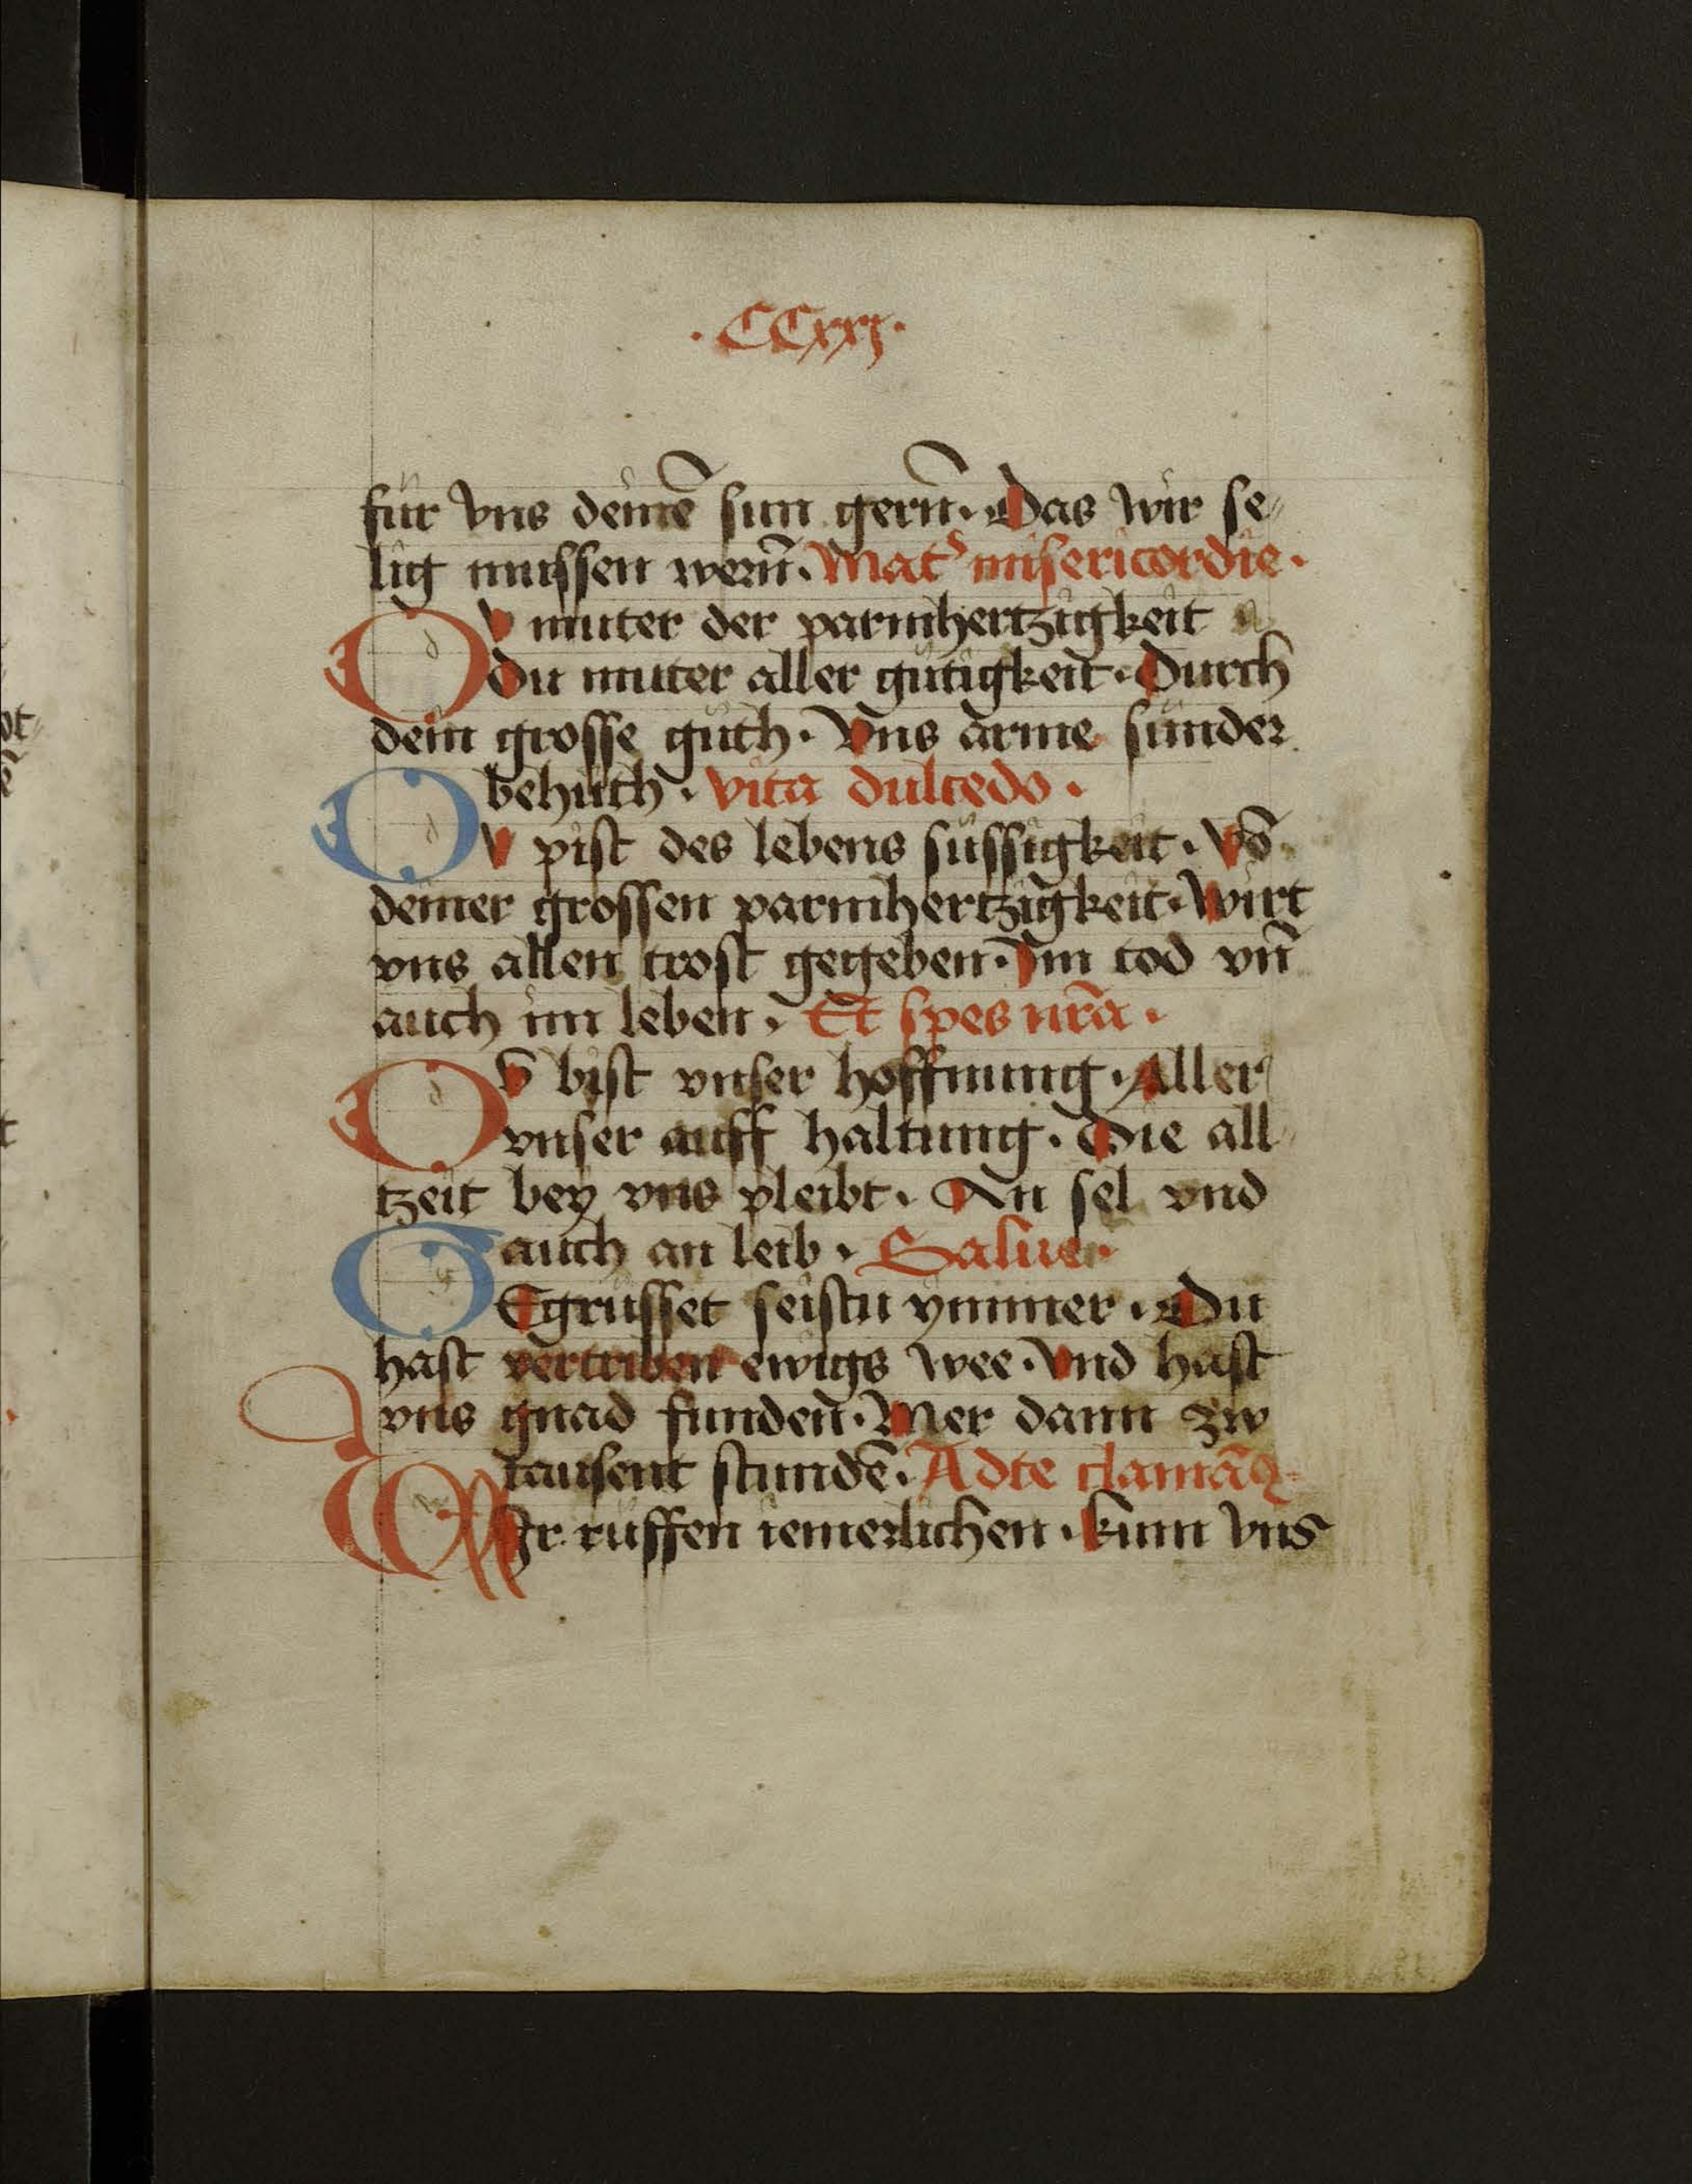 · CCxxj ·
für vns deinē sun gern̄ · Das wir se⸗
lig mussen wern̄ · Mat͛ misericordie ·
DV muter der parmhertzigkeit
du muter aller gütigkeit · Durch
dein grosse güth · Vns arme sünder
behüth · vita dulcedo ·
DV pist des lebens süssigkeit · Vō
deiner grossen parmhertzigkeit · Wirt
vns allen trost gegeben · Im tod vn̄
auch im leben · Et spes nr̄a ·
DV bist vnser hoffnung · Aller
vnser auff haltung · Die all
tzeit bey vns pleibt · An sel vnd
auch an leib · Salue ·
GEgrüsset seistu ymmer · Du
hast vertriben ewigs wee · Vnd hast
vns gnad funden · Mer dann zw
tausent stundē · Adte clamāꝰ
WIr rüffen iemerlichen · kum vns